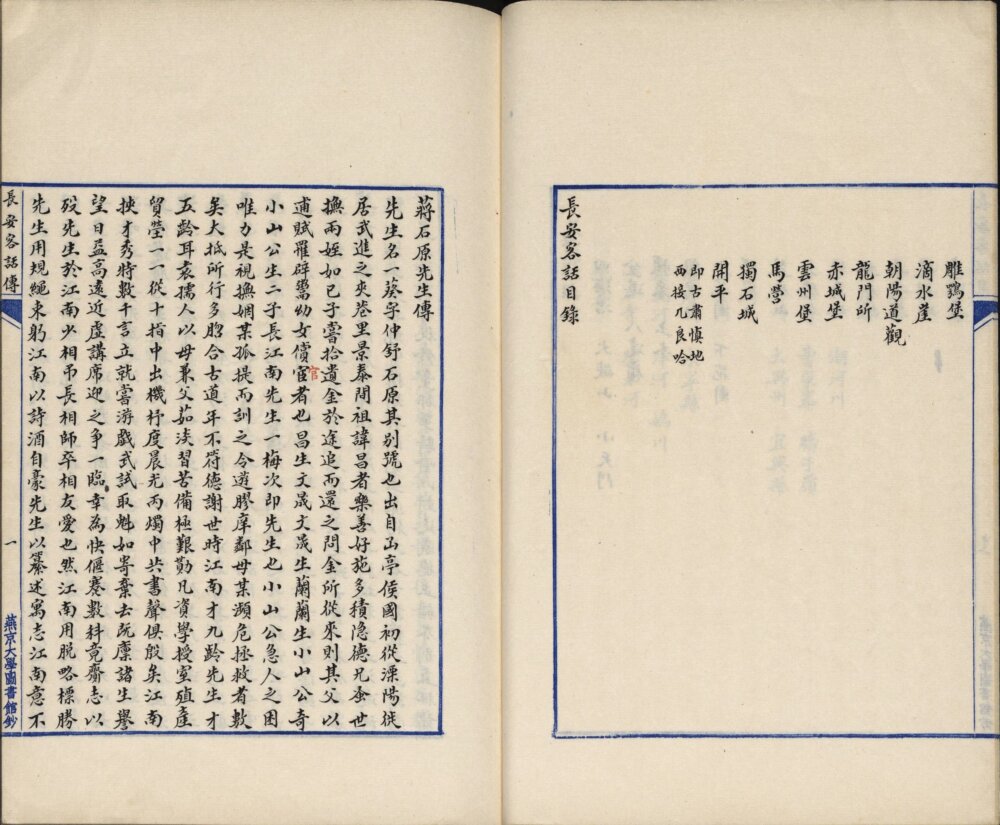 雕鶚堡
滴水崖
朝陽道觀
龍門所
赤城堡
雲州堡
馬營
獨石城
開平
即古肅慎地
西接兀良哈
長安客話目錄
蔣石原先生傳
先生名一葵字仲舒石原其别號也出自亟亭侯國初從溧陽徙
居武進之夾巷里景泰間祖諱昌者樂善好施多積隐德兄蚤世
撫兩姪如已子嘗拾遺金於途追而還之問金所從來則其父以
逋賦罹辟鬻幼女償宦者也昌生文晟文晟生蘭蘭生小山公奇
官
小山公生二子長江南先生一梅次即先生也小山公急人之困
唯力是視撫姻某孤提而訓之令遊膠庠鄰母某瀕危拯救者數
矣大抵所行多脗合古道年不符德謝世時江南才九齡先生才
五齡耳袁孺人以母兼父茹淡習苦備極艱勩凡資學授室殖產
貿塋一一從十指中出機杼度晨光丙燭中共書聲俱殷矣江南
挾才秀特數千言立就嘗游戲武試取魁如寄棄去旣廩諸生譽
望日益高遠近虛講席迎之争一臨幸為快偃蹇數科竟齎志以
歿先生於江南少相吊長相師卒相友愛也然江南用脱略標勝
先生用規繩束躬江南以詩酒自豪先生以纂述寓志江南意不
長安客話傳
一
燕京大學圖書館鈔